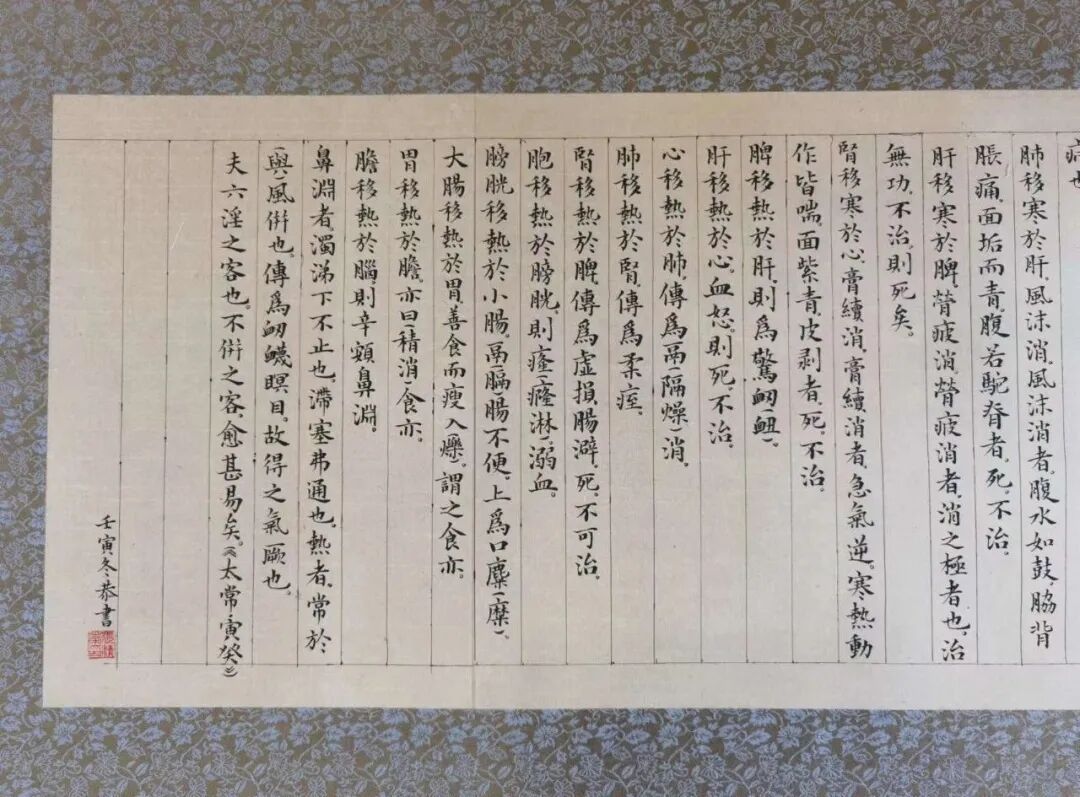 病也
肺移寒於肝，風沫消。風沫消者，腹水如鼓，脇背
脹痛，面垢而青，腹若駝脊者，死，不治。
肝移寒於脾，膂疲消，膂疲消者，消之極者也，治
無功，不治，則死矣。
腎移寒於心，膏續消，膏續消者，急氣逆。寒熱動
作皆喘，面紫青，皮剥者，死，不治。
脾移熱於肝，則爲驚衂（衄）。
肝移熱於心，血怒。則死，不治。
心移熱於肺，傳爲鬲（隔）燥（消）。
肺移熱於腎，傳爲柔痓。
腎移熱於脾，傳爲虛損腸澼，死，不可治。
胞移熱於膀胱，則㾏（癃淋），溺血。
膀胱移熱於小腸，鬲（膈）腸不便，上爲口麋（糜）。
大腸移熱於胃，善食而瘦入（爍）。謂之食亦。
胃移熱於膽，亦曰（積消）食亦。
膽移熱於腦，則辛頞鼻淵。
鼻淵者，濁涕下不止也，滯塞弗通也，熱者，常於
與風併也。傳爲衂衊瞑目。故得之氣厥也。
夫六淫之客也。不併之客，愈甚易矣。《太常寅癸》
壬寅冬恭書